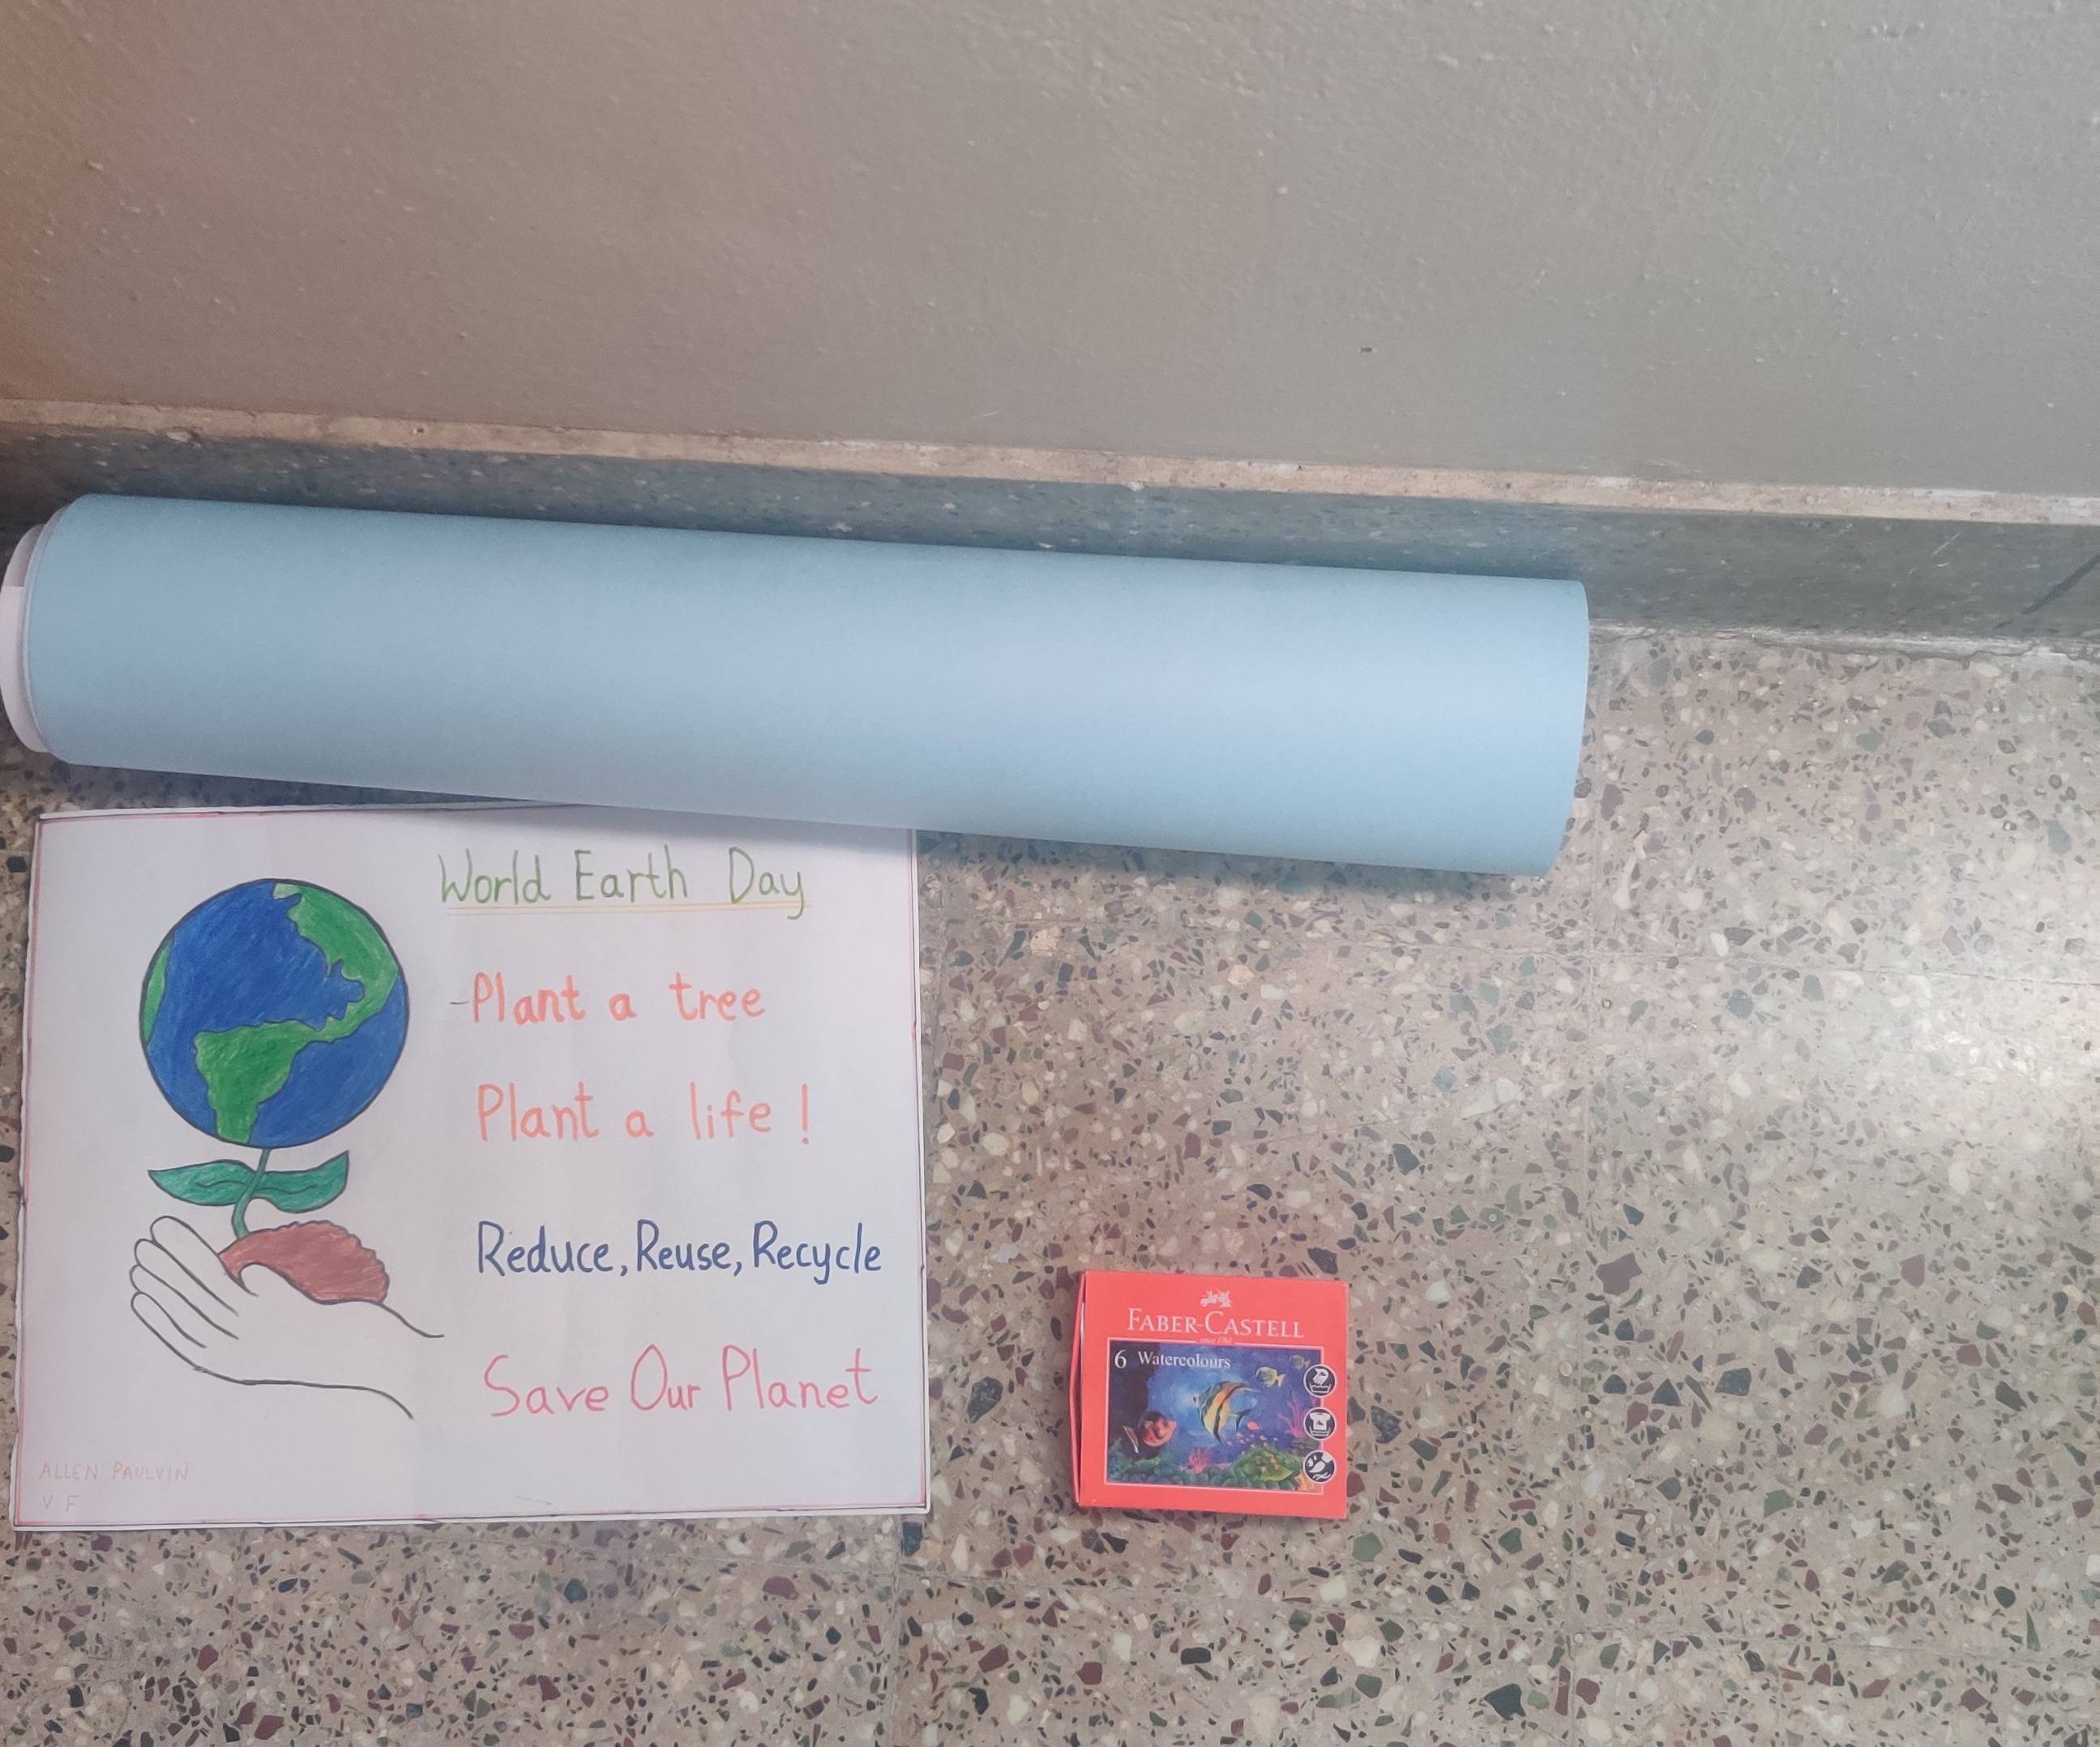 World Earth Day
-Plant a tree
Plant a life !
Reduce, Reuse, Recycle
Save Our Planet
ALLEN PAULVIN
V F
FABER-CASTELL
since 1761
6 Watercolours